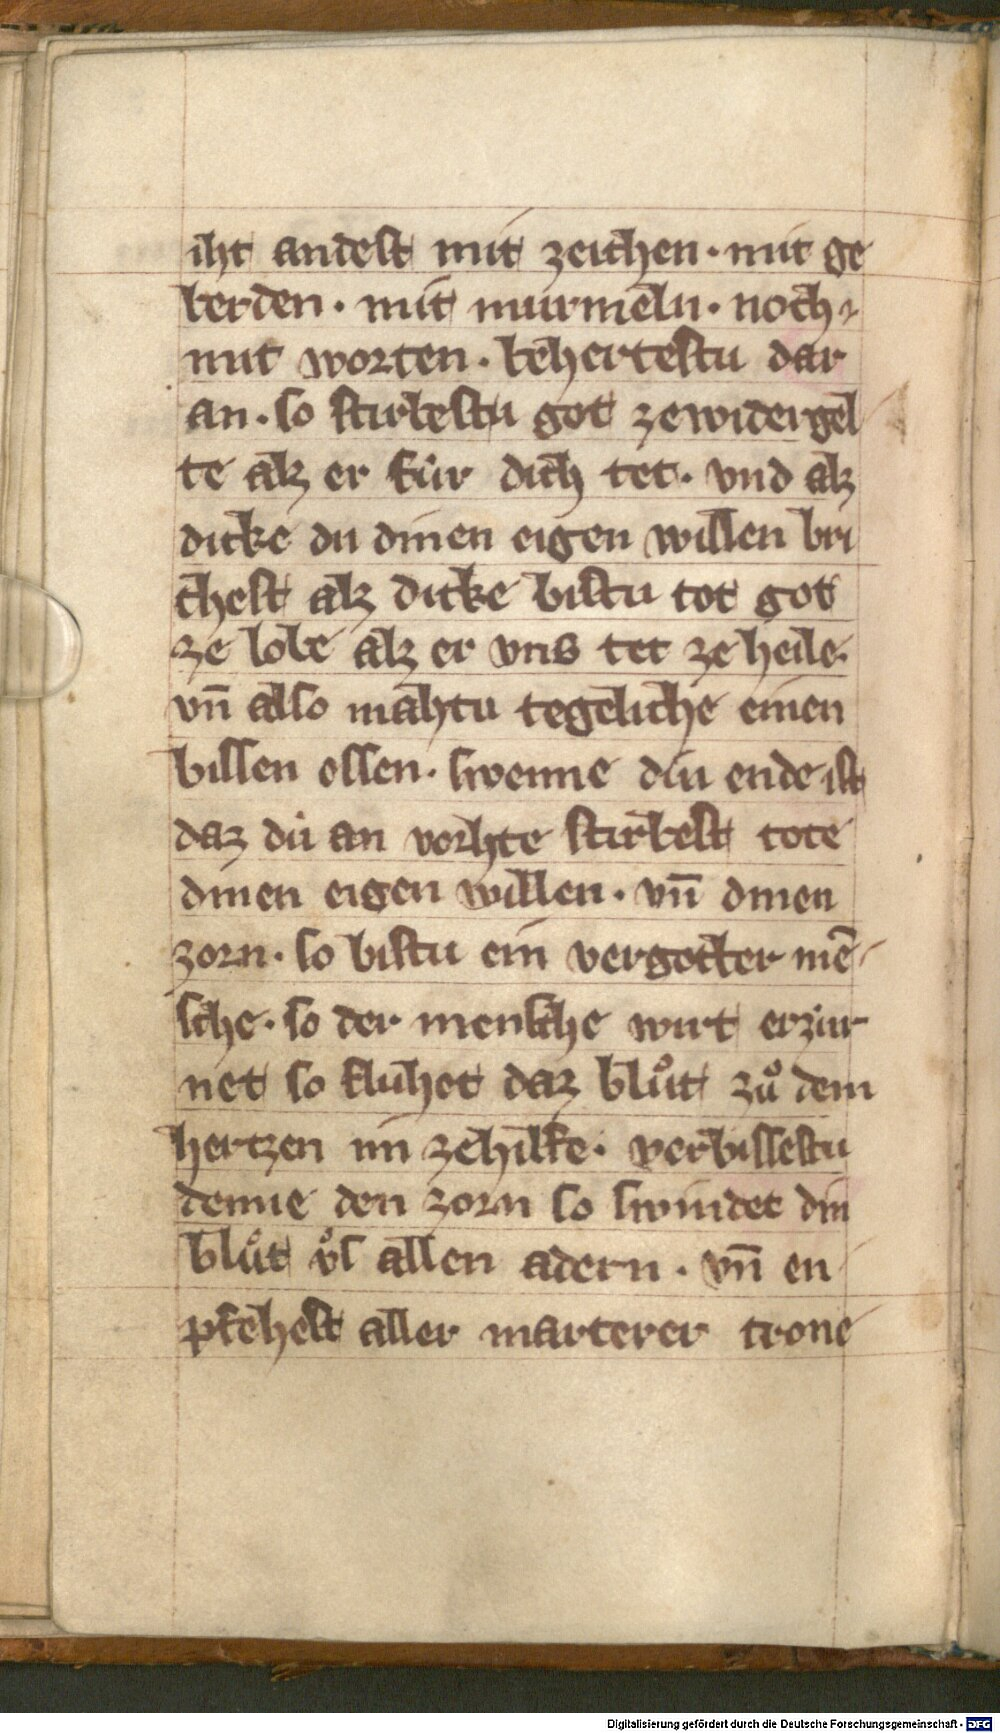 iht andest mit zeichen · mit ge
berden · mit murmeln · noch
mit worten · behertestu dar
an · so stirbestu got zewidergel
te alz er für dich tet · vnd alz
dicke du dinen eigen willen bri
chest alz dicke bistu tot got
ze lobe alz er vns tet ze heile ·
vn̄ also mahtu tegeliche einen
bissen essen · swenne din ende ist
daz du an vorhte stirbest tote
dinen eigen willen · vn̄ dinen
zorn · so bistu ein vergotter mē
sche · so der mensche wirt erzur
net so fluhet daz blůt zů dem
hertzen im zehilfe · verbissestu
denne den zorn so swindet din
blůt vͦs allen adern · vn̄ en
pfehest aller marterer trone
Digitalisierung gefördert durch die Deutsche Forschungsgemeinschaft - DFG